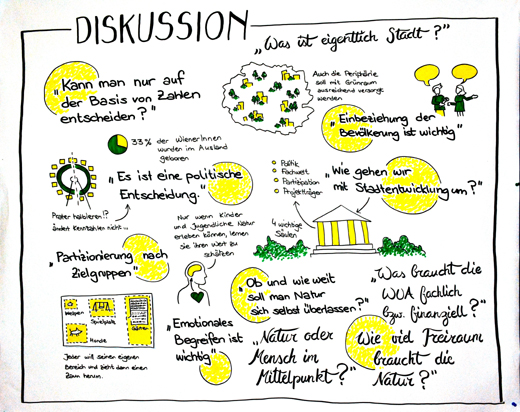 DISKUSSION
„Was ist eigentlich Stadt?"
„Kann man nur auf
der Basis von Zahlen
entscheiden?"
Auch die Peripherie
soll mit Grünraum
ausreichend versorgt
werden
„Einbeziehung der
Bevölkerung ist wichtig"
33% der WienerInnen
wurden im Ausland
geboren
„Es ist eine politische
Entscheidung."
Prater halbieren!?
ändert Kennzahlen nicht...
Politik
Fachwelt
Partizipation
Projektträger
4 wichtige
Säulen
„Wie gehen wir
mit Stadtentwicklung um?"
Nur wenn Kinder
und Jugendliche Natur
erleben können, lernen
sie ihren Wert zu
schätzen
„Partizionierung nach
Zielgruppen"
Wespen
Spielplatz
Hunde
Gärten
Jeder will seinen eigenen
Bereich und zieht dann einen
Zaun herum.
„Emotionales
Begreifen ist
wichtig"
„Ob und wie weit
soll man Natur
sich selbst überlassen?"
„Natur oder
Mensch im
Mittelpunkt?"
„Was braucht die
WUA fachlich
bzw. finanziell?"
„Wie viel Freiraum
braucht die
Natur?"